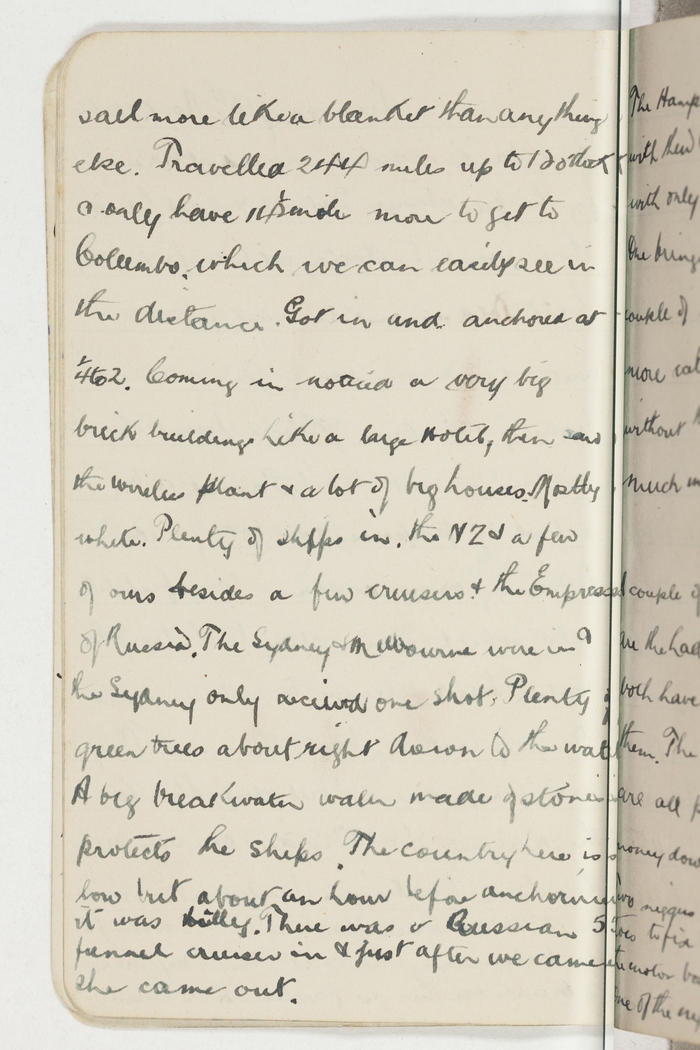 sail more like a blanket than any thing
else. Travelled 244 miles up to 12 oclock
& only have 11 1/2 mile more to get to
Columbo, which we can easily see in
the distance. Got in and anchored at
1/4 to 2. Coming in noticed a very big
brick buildings like a large Hotel, then
the wireless plant & a lot of big houses. Mostly
white. Plenty of shipps in, the NZs & a few
of ours besides a few cruisers & the Empress
of Russia. The Sydney & Melbourne were in
the Sydney only received one shot. Plenty of
green trees about right down to the water
A big breakwater made of stones
protects the ships. The country here is
low but about an hour before anchoring
it was hilly. There was a Russian 5
funnel cruiser in & just after we came
she came out.
The Hamp
with their
with only
One brings
couple of
more
without
much
couple of
are the
both have
them. The
are all
money down
to fix
motor
One of the